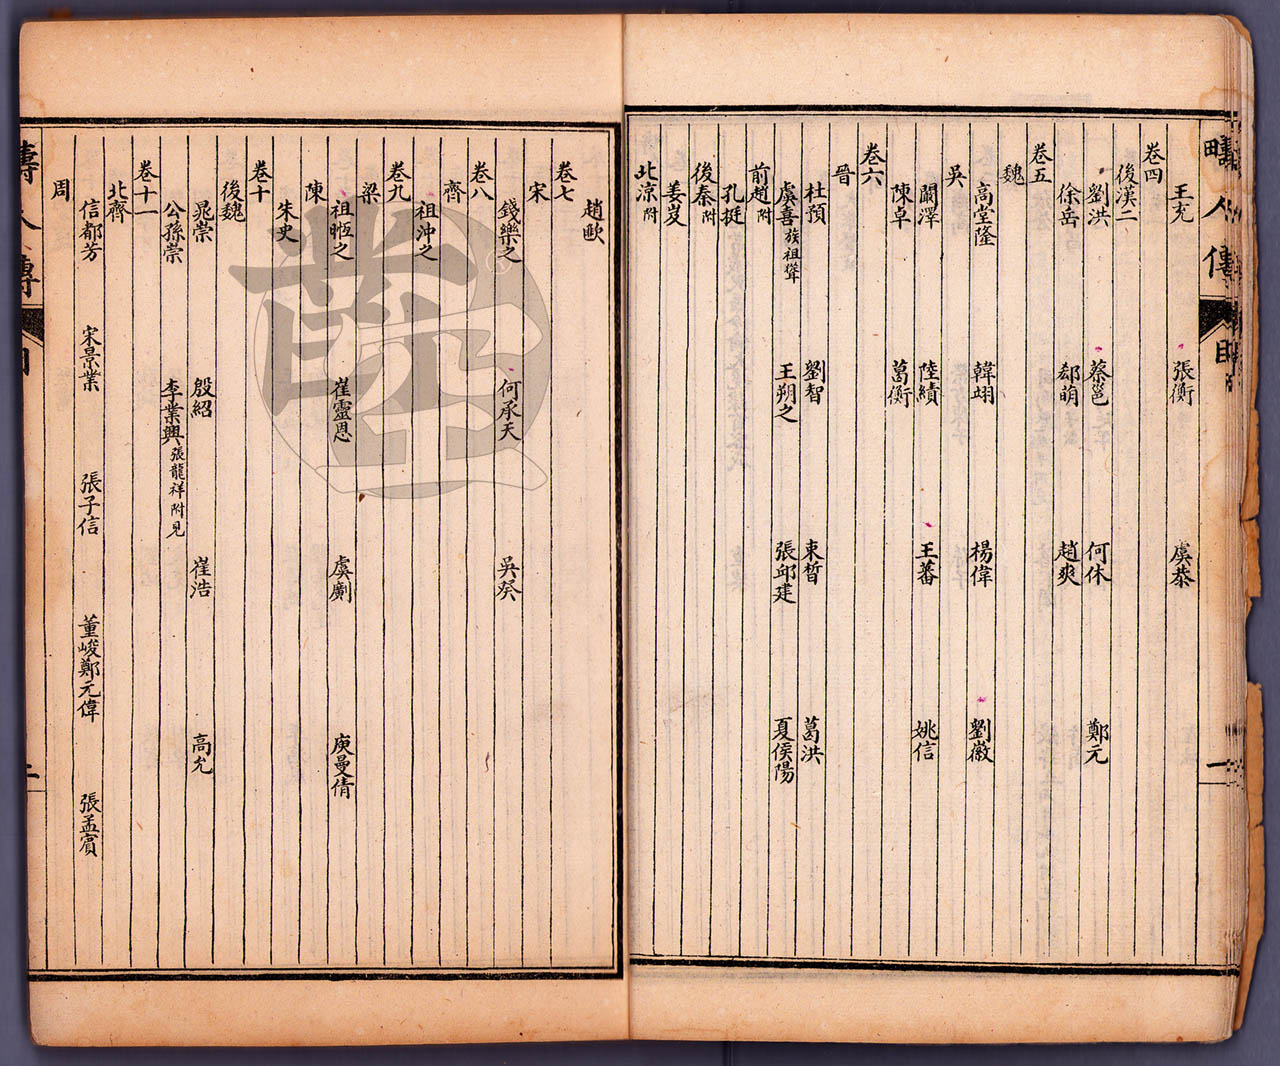 疇人傳 目 一
王充 張衡 虞恭
卷四
後漢二
劉洪 蔡邕 何休 鄭元
徐岳 郄萌 趙爽
卷五
魏
高堂隆 韓翊 楊偉 劉徽
吳
闞澤 陸績 王蕃 姚信
陳卓 葛衡
卷六
晉
杜預 劉智 束晳 葛洪
虞喜族祖聳 王朔之 張邱建 夏侯陽
前趙附
孔挺
後秦附
姜岌
北涼附
趙𢾺
卷七
宋
錢樂之 何承天 吳癸
卷八
齊
祖沖之
卷九
梁
祖暅之 崔靈恩 虞𠠎 庾曼倩
陳
朱史
卷十
後魏
晁崇 殷紹 崔浩 高允
公孫崇 李業興張龍祥附見
卷十一
北齊
信都芳 宋景業 張子信 董峻鄭元偉 張孟賓
周
疇人傳 目 二